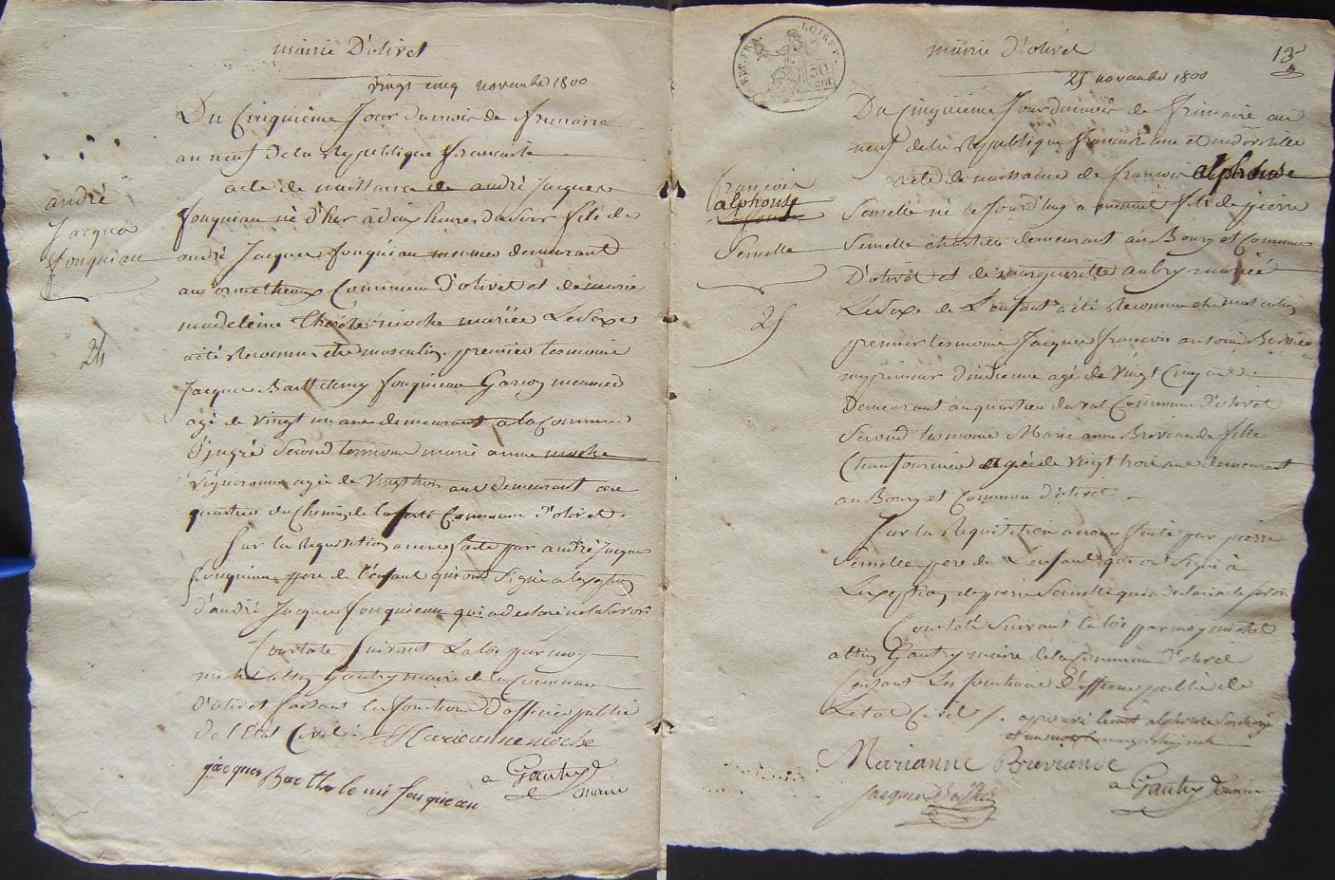 mairie D'olivet
vingt cinq novembre 1800
Du Cinquieme Jour du mois de frimaire
an neuf de la Republique francaise
acte de naissance de andré Jacques
fouqueau né d'hier à deux heures du soir fils de
andré Jacques fouqueau meunier demeurant
aux Commune D'olivet et de marie
madeleine mariée Le Sexe
a été Reconnu etre masculin. premier temoin
Jacques Barthelemy fouqueau Garçon meunier
agé de vingt un ans demeurant a la Commune
D'ingré Second temoin marie anne
Vigneronne agée de vingt trois ans demeurant au
quartier du Chemin de la ferté Commune D'olivet.
Sur la Requisition a nous faite par andré Jacques
fouqueau pere de l'enfant qui ont Signé a l'exception
d'andré Jacques fouqueau qui a declaré ne le savoir
Constaté Suivant La loi par moy
Gautry maire de la Commune
D'olivet faisant les fonctions D'officier public
de l'Etat Civil Marie anne
jacques Barthelemi fouqueau
a Gautry
maire
andré
Jacques
fouqueau
24
mairie d'olivet
13
REP. FRA. LOIRET
25 novembre 1800
Du Cinquieme Jour du mois de frimaire an
neuf de la Republique francaise une et indivisible
acte de naissance de francois alphonse
Semelle né le Jourd'huy a fils de pierre
Semelle demeurant au Bourg et Commune
D'olivet et de marguerite aubry mariée
Le Sexe de L'enfant a été Reconnu etre masculin
premier temoin Jacques francois
imprimeur d'indienne agé de vingt Cinq ans
Demeurant au quartier du val Commune D'olivet
Second temoin Marie anne fille
Chaufournier agée de vingt trois ans demeurant
au Bourg et Commune D'olivet.
Sur la Requisition a nous faite par pierre
Semelle pere de L'enfant qui ont Signé à
L'exception de pierre Semelle qui a declaré ne le savoir
Constaté Suivant la loi par moy
Gautry maire de la Commune D'olivet
faisant Les fonctions d'officier public de
L'etat Civil /. approuvé alphonse
Marianne
jacques
a Gautry maire
francois
alphonse
Semelle
25